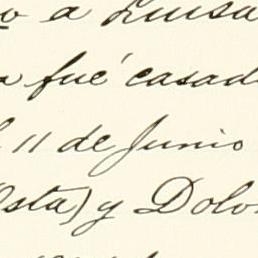 o a Luisa
a fué casad
11 de Junio
Osta) y Dolo